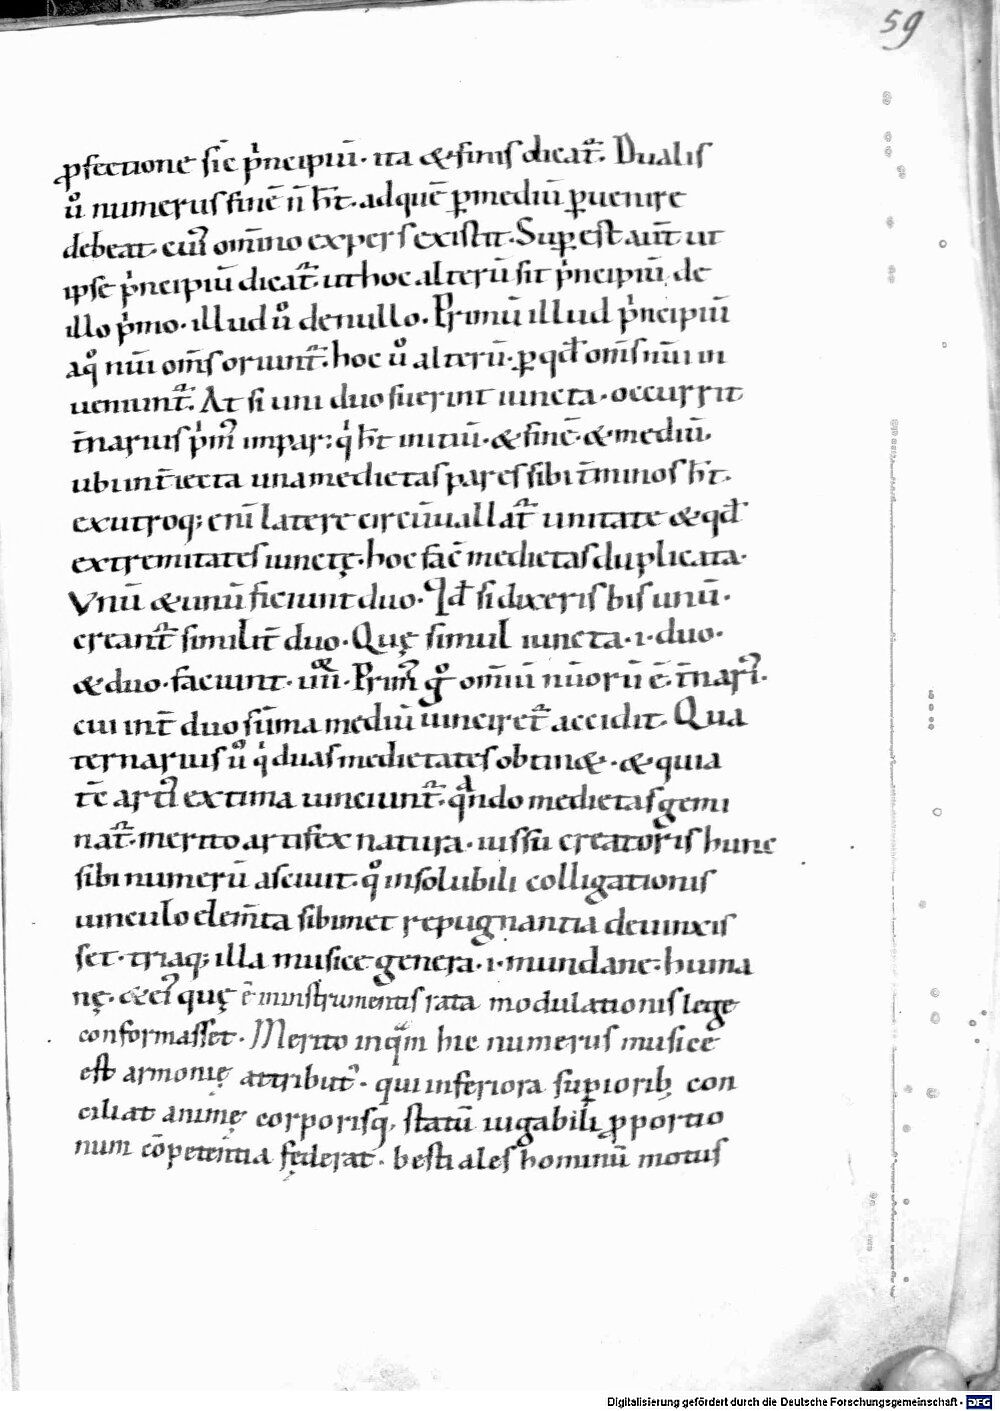 59
ꝓfectione sic̄ pͥncipiū· ita & finis dicat᷑. Dualis
ů numerus finē n̄ hт̄· ad quē ꝑ mediū ꝑuenire
debeat· cui᷒ om̄ino expers existit. Suꝑest aut̄ ut
ipse pͥncipiū dicat᷑. ut hoc alterū sit pͥncipiū de
illo pͥmo· illud ů de nullo. Primū illud pͥncipiū
a qͦ nūi om̄s oriunt᷑. hoc ů alterū· ꝑ qđ om̄s nūi in
ueniunt᷑. At si uni duo fuerint iuncta· occurrit
t̄narius pͥm᷒ impar: qͥ ht̄ initiū· & finē· & mediū.
ubi int̄iecta una medietas pares sibi t̄minos ht̄.
ex utroq; enī latere circūuallat᷑ unitate & qđ
extremitates iunctę· hoc fac̄ medietas duplicata·
Vnū & unū ficiunt duo· Qđ si dixeris bis unū·
creant᷑ similit̄ duo· Quę simul iuncta·i·duo·
& duo· faciunt· iiii· Prim᷒ gͦ om̄iū nūorū ē t̄nari᷒·
cui int̄ duo sūma mediū iunciret᷑ accidit. Qua
ternarius ů qͥ duas medietates obtin&· & quia
tē arcti᷒ extima iunciunt᷑· qͣndo medietas gemi
nat᷑· merito artifex natura· iussū creatoris hunc
sibi numerū asciuit· qͦ insolubili colligationis
uinculo elem̄ta sibimet repugnantia deuinxis
set· triaq; illa musice genera·i·mundane· huma
nę· & ei᷒ quę ē in instrumentis rata modulationis lege
conformasset· Merito inqͣm hic numerus musice
est armonię attribut᷒· qui inferiora suꝑiorib; con
ciliat animę corporisq; statū iugabili ꝓportio
num cōpetentia fęderat· bestiales hominū motus
Digitalisierung gefördert durch die Deutsche Forschungsgemeinschaft - DFG